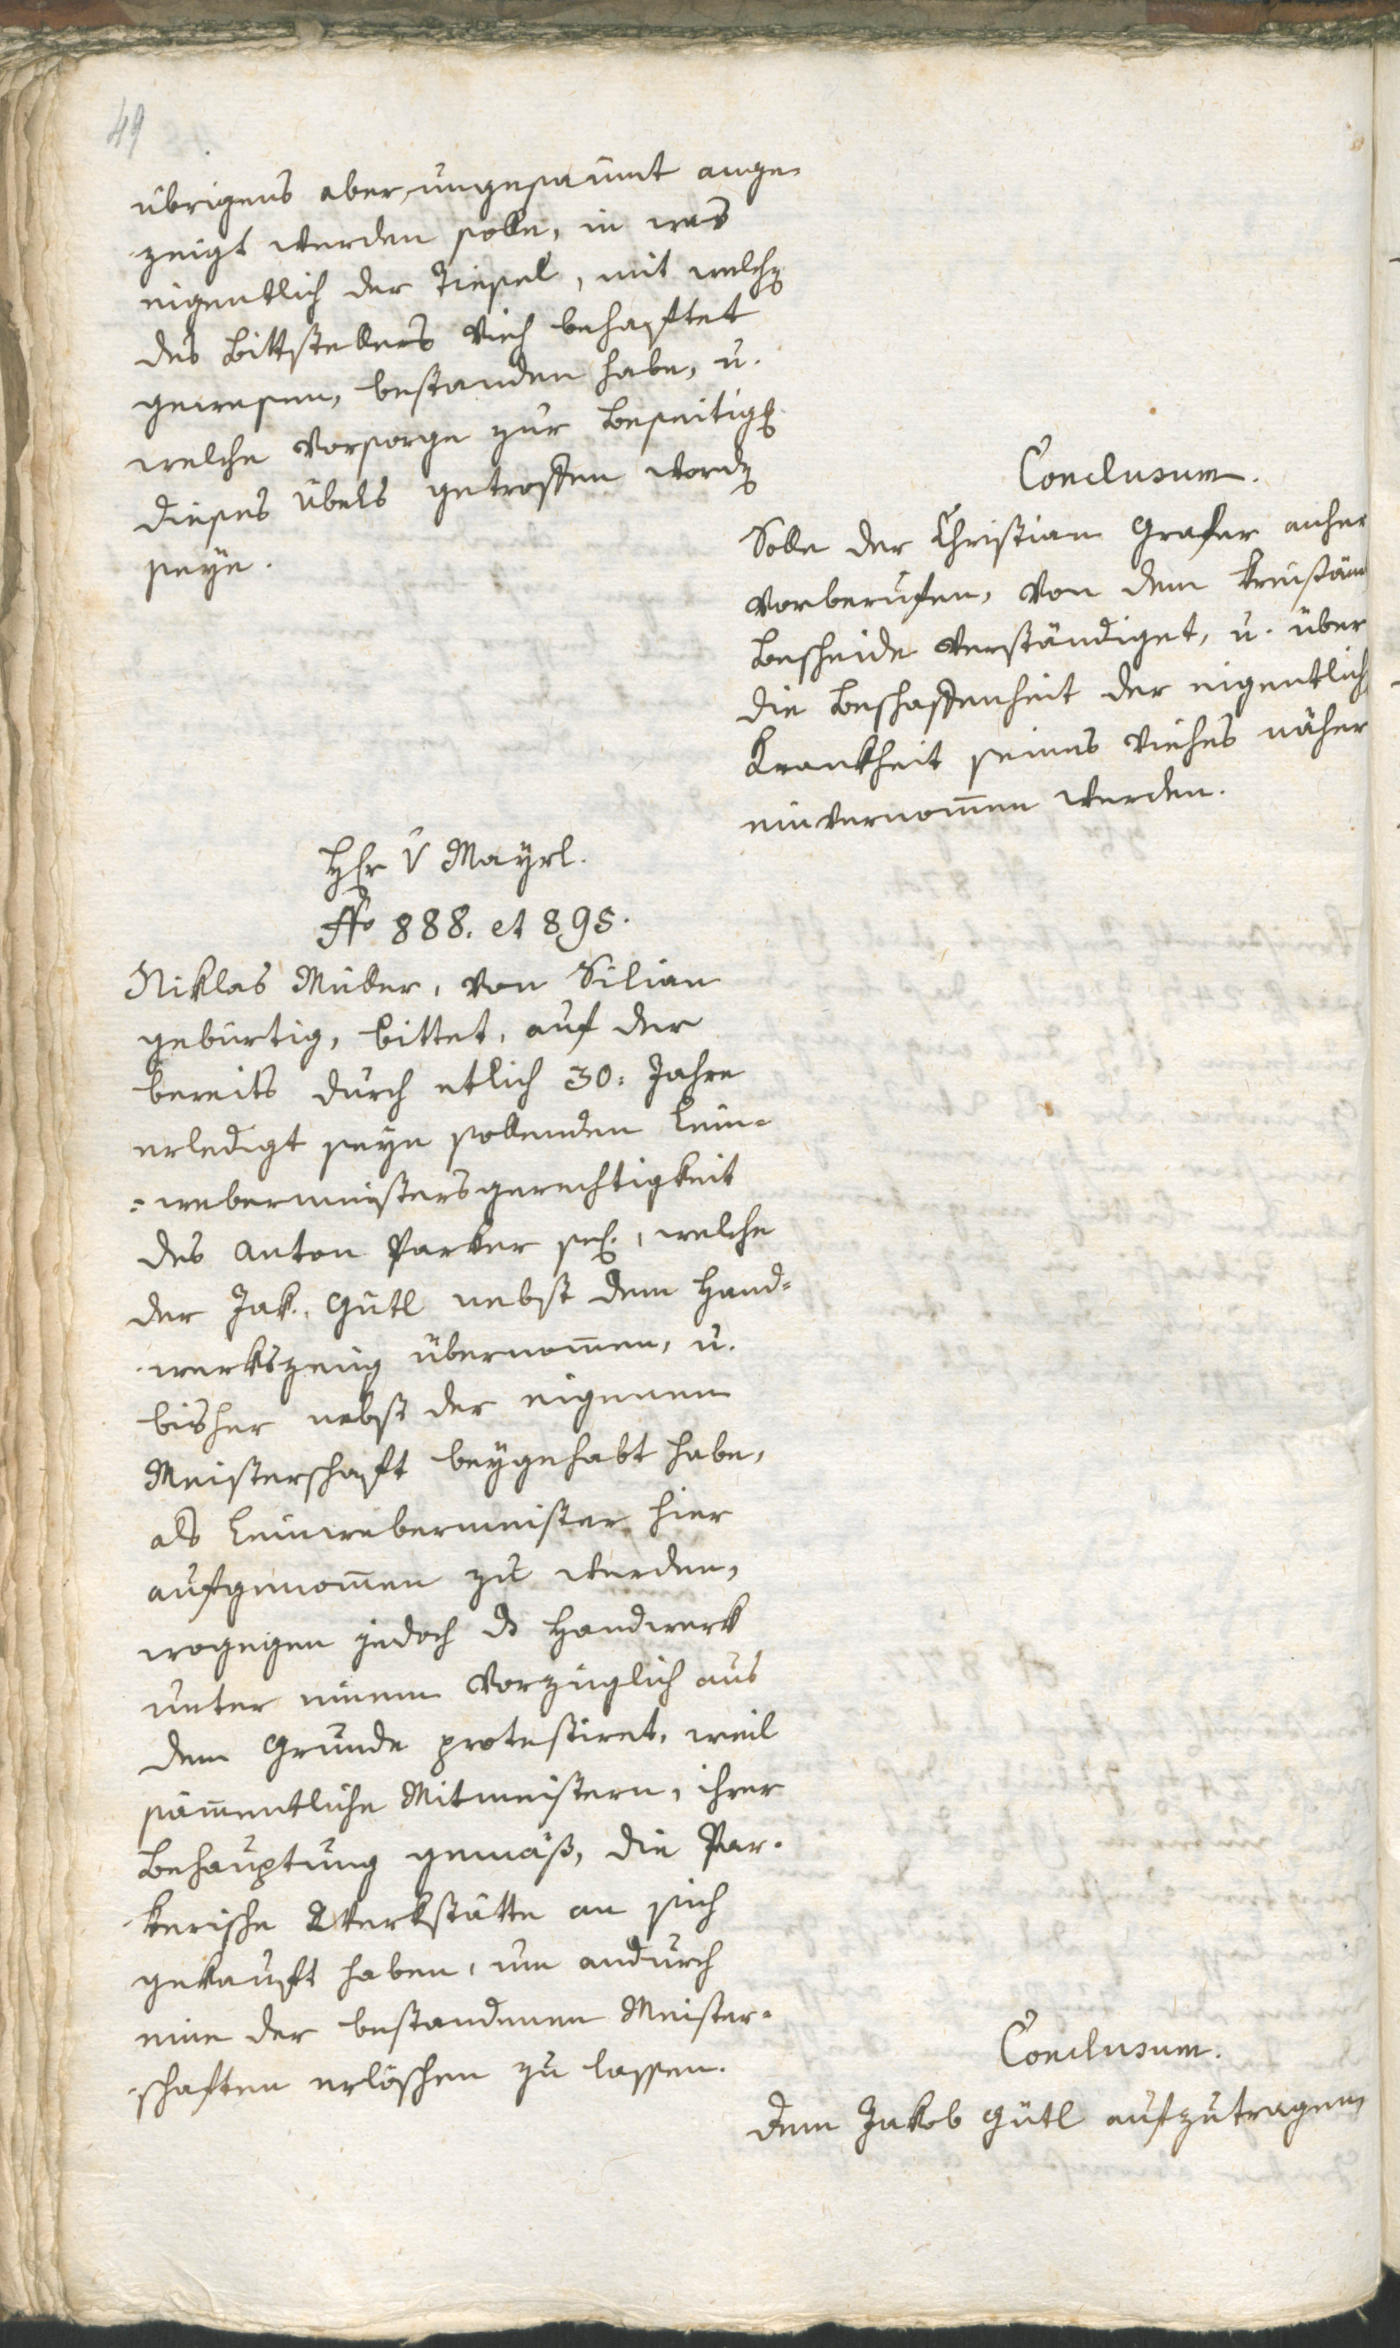 49
übrigens aber ungesaumt ange-
zeigt werden solle, in was
eigentlich der Priesel, mit welch
des Bittstellers Viech behaftet
gewesen, bestanden habe, u.
welche Vorsorge zur Beseitig
dieses Übels getroffen word
seye.
Conclusum.
Solle der Christian Grafer anher
vorberufen, von dem kreisäm
Bescheide verständiget, u. über
die Beschaffenheit der eigentlich
Krankheit seines Viehes näher
einvernom̅en werden.
Hr v Mayrl.
No 888. et 895.
Niklas Müller, von Silian
gebürtig, bittet, auf der
bereits durch etlich 30: Jahre
erledigt seyn sollenden Lein-
=webermeistersgerechtigkeit
des Anton Parker sel., welche
der Jak. Gütl nebst dem Hand-
werkszeug übernom̅en, u.
bisher nebst der eigenen
Meisterschaft beygehabt habe,
als Leinwebermeister hier
aufgenom̅en zu werden,
wogegen jedoch ds Handwerk
unter einem vorzüglich aus
dem Grunde protestiret, weil
säm̅entliche Mitmeistern, ihrer
Behauptung gemäß, die Par-
kerische Werkstätte an sich
gekauft haben, um andurch
eine der bestandenen Meister-
schaften erlöschen zu lassen.
Conclusum.
Dem Jakob Gütl aufzutragen,